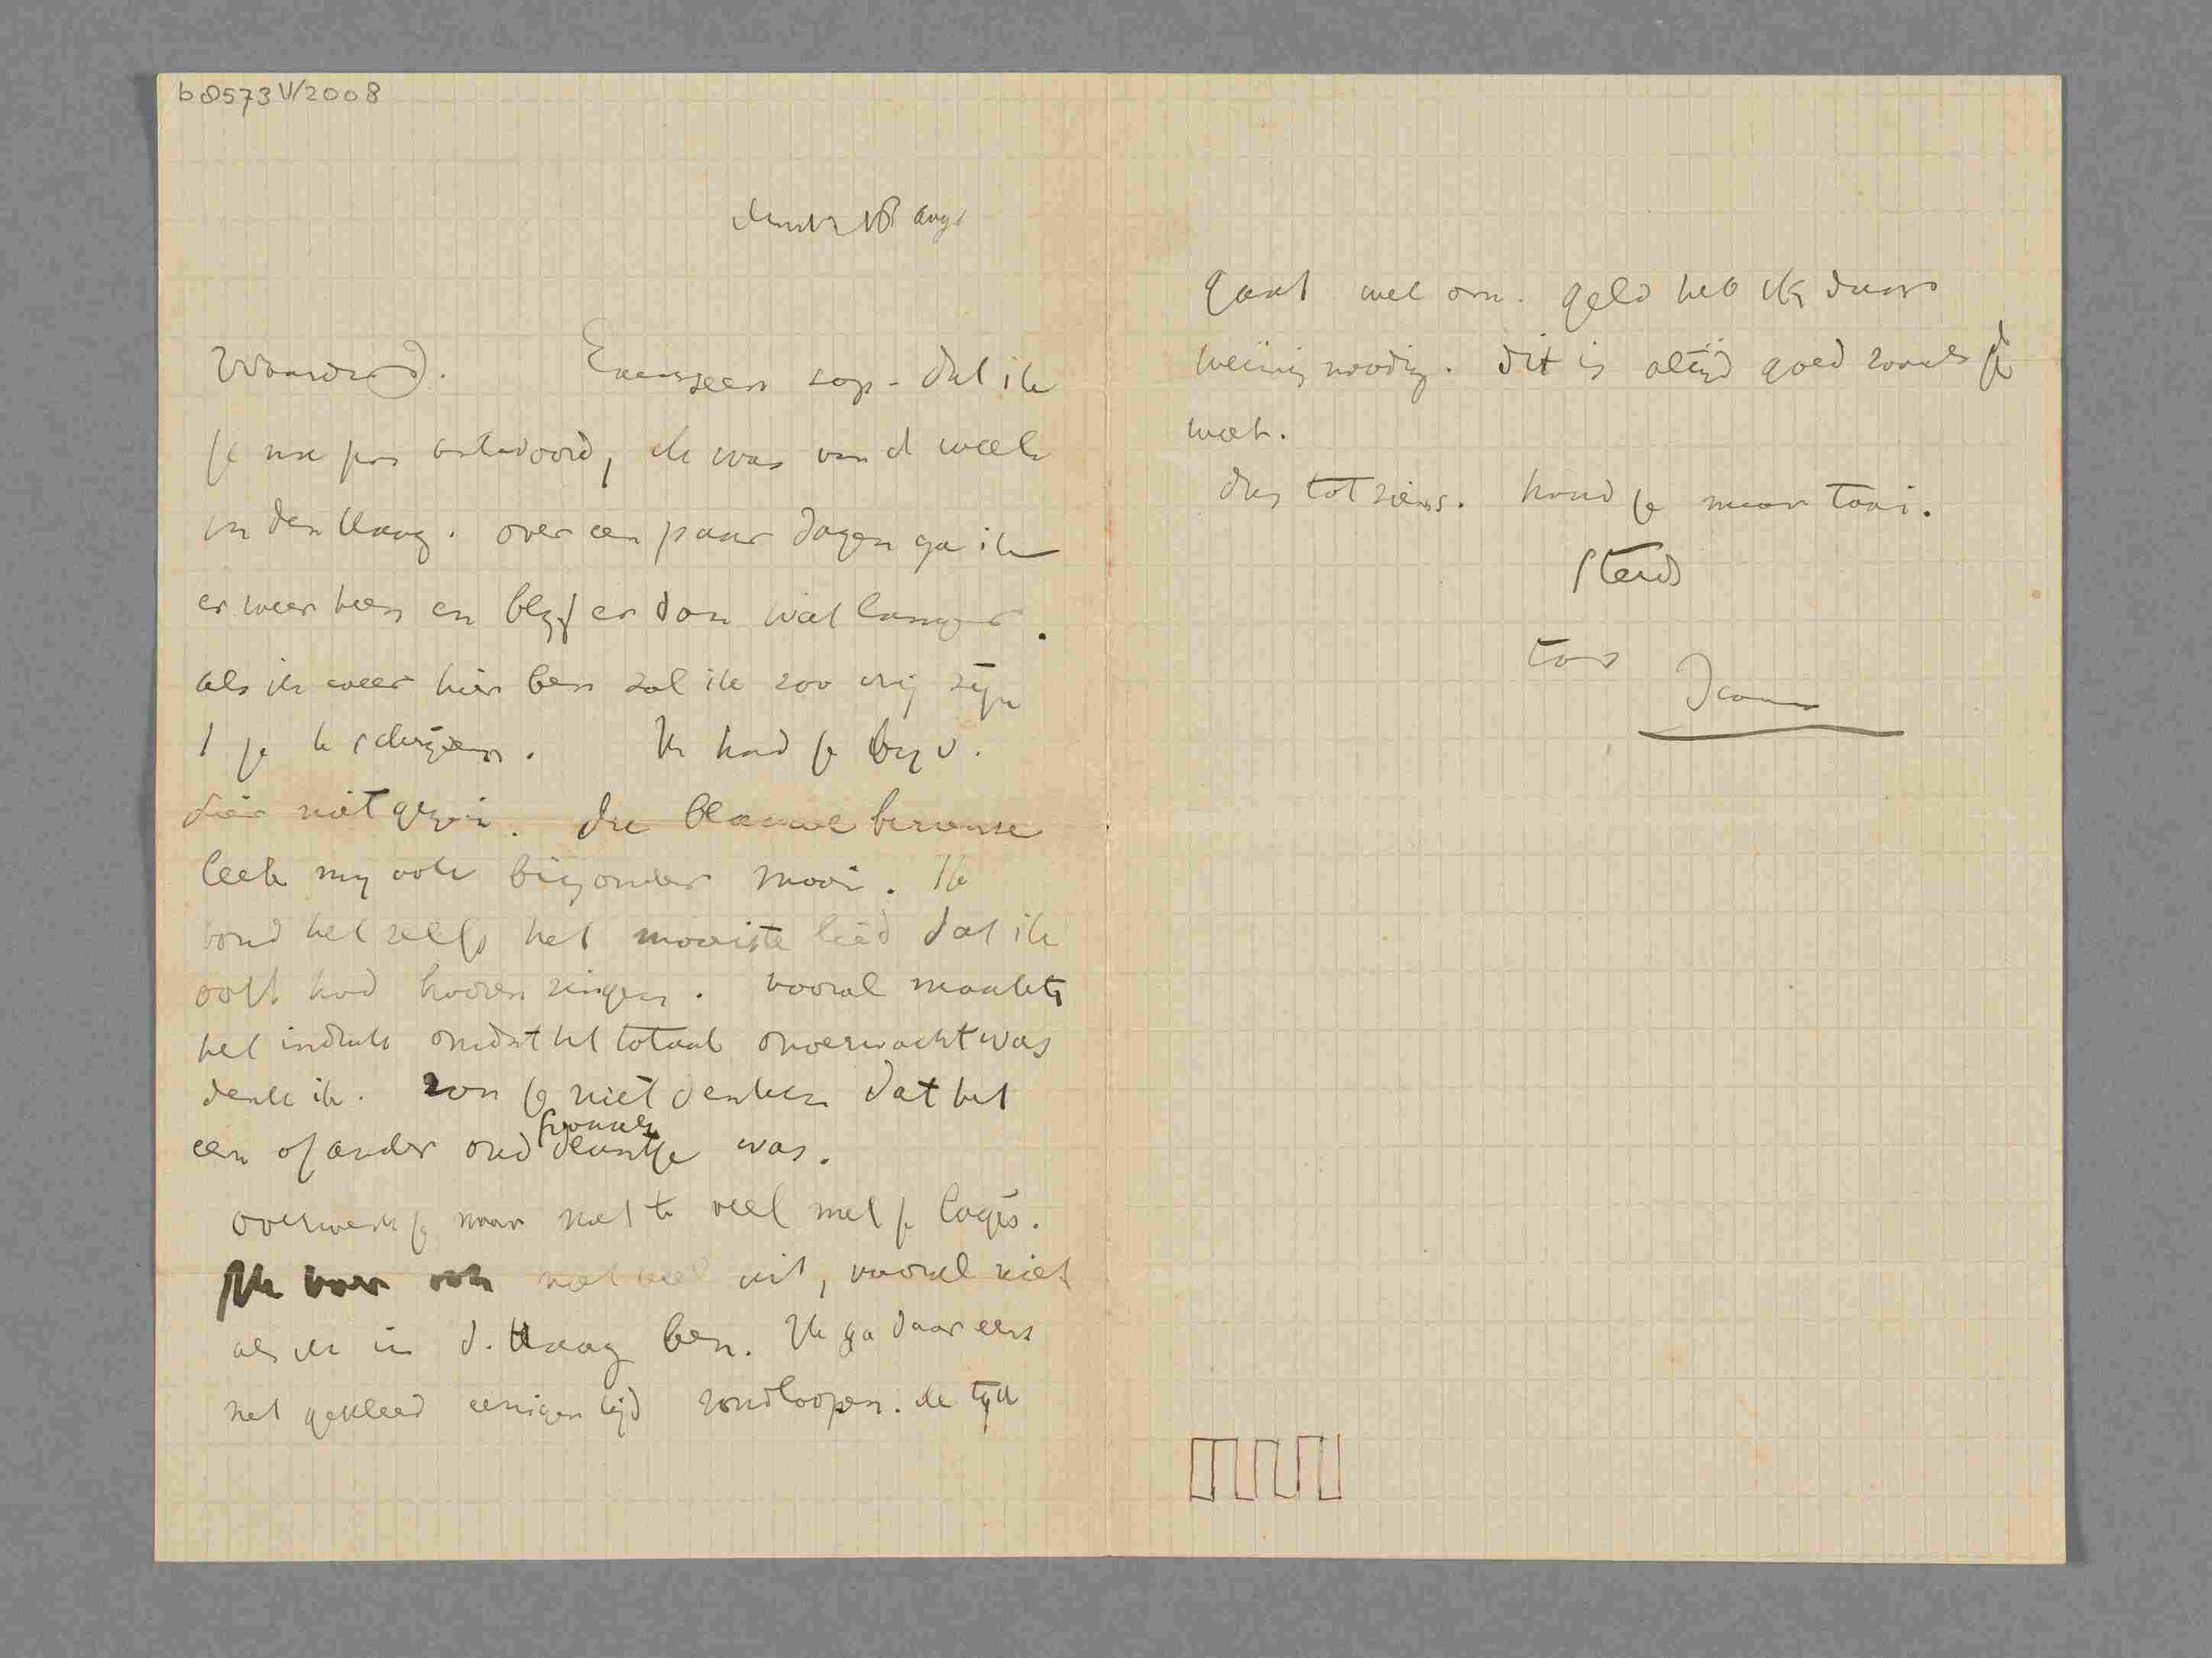 b8573 V/2008
18 aug
Waarde
dat ik
je nu pas antwoord, ik was van d week
in den Haag. over een paar dagen ga ik
er weer heen en blyf er dan wat langer.
als ik weer hier ben zal ik zoo vrij zijn
je te schrijven. Ik had je byv.
niet gezien. die blauwe
leek my ook bizonder mooi. Ik
vond het zelfs het mooiste lied dat ik
ooit had hooren zingen. vooral maakte
het indruk omdat het totaal onverwacht was
denk ik. zou je niet denken dat het
een of ander oud deuntje was.
overwerk je maar niet te veel met je logés.
Ik voer ook niet veel uit, vooral niet
als ik in d. Haag ben. Ik ga daar eens
net gekleed eenigen tijd rondloopen. de tyd
gaat wel om. geld heb ik daar
weinig noodig. dit is altijd goed zooals je
weet.
dus tot ziens. houd je maar taai.
steeds